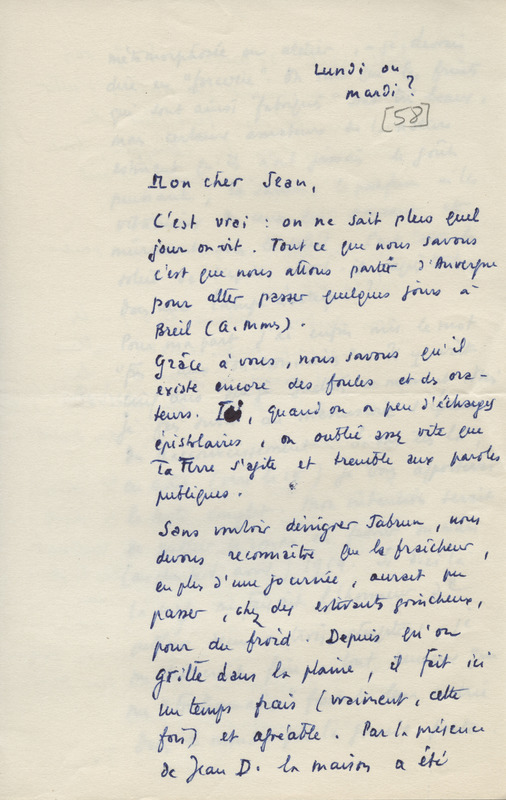 Lundi ou
mardi ?
[58]
Mon cher Jean,
C'est vrai : on ne sait plus quel
jour on vit. Tout ce que nous savons
c'est que nous allons partir d'Auvergne
pour aller passer quelques jours à
Breil (A. Mms).
Grâce à vous, nous savons qu'il
existe encore des foules et des ora-
teurs. Ici, quand on a peu d'échanges
épistolaires, on oublie assez vite que
la Terre s'agite et tremble aux paroles
publiques.
Sans vouloir dénigrer Jabrun, nous
devons reconnaître que la fraîcheur,
en plus d'une journée, aurait pu
passer, chez des estivants grincheux,
pour du froid. Depuis qu'on
grille dans la plaine, il fait ici
un temps frais (vraiment, cette
fois) et agréable. Par la présence
de Jean D. la maison a été